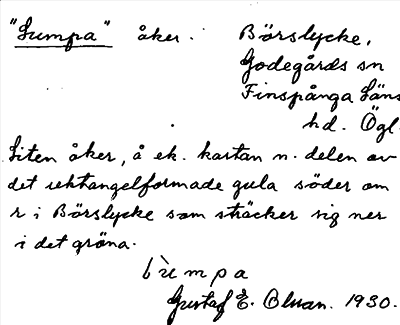 "Lumpa" åker. Börslycke,
Godegårds sn
Finspånga Läns
hd. Ögl.
Liten åker, å ek. kartan n. delen av
det rektangelformade gula söder om
r i Börslycke som sträcker sig ner
i det gröna.
lùmpa
Gustaf E. 1930.